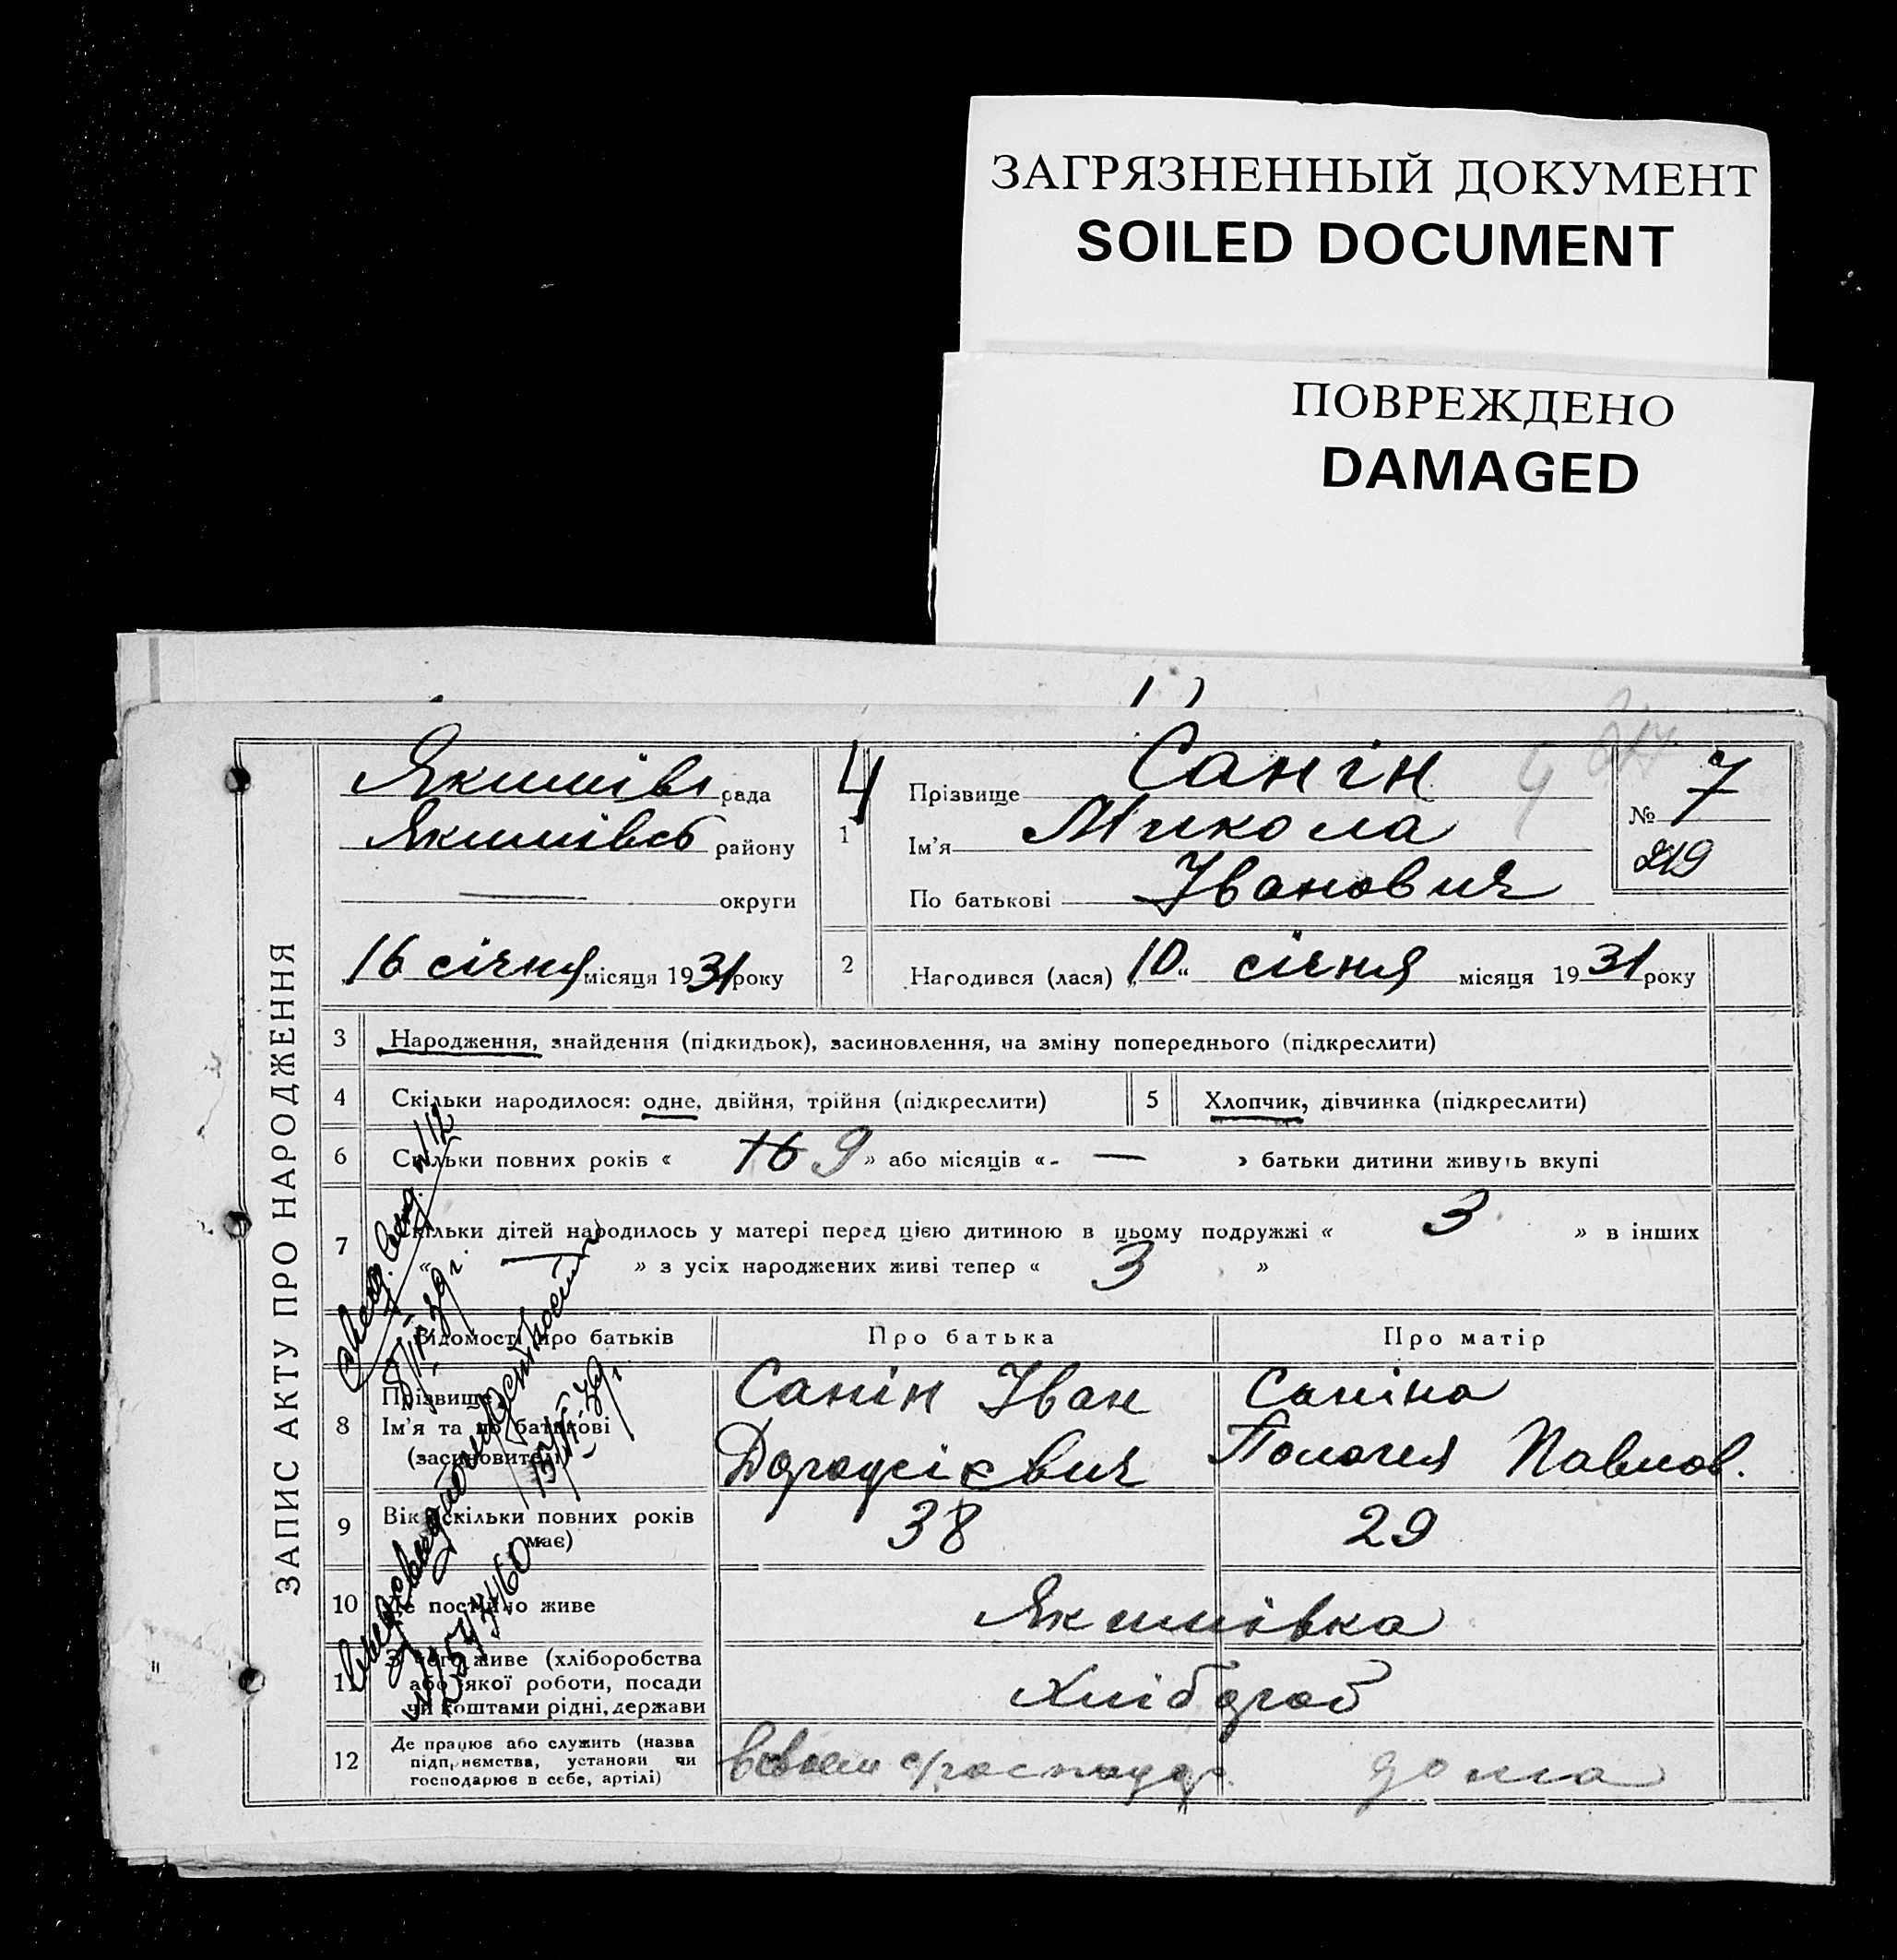 ЗАГРЯЗНЕННЫЙ ДОКУМЕНТ
SOILED DOCUMENT
ПОВРЕЖДЕНО
DAMAGED
ЗАПИС АКТУ ПРО НАРОДЖЕННЯ
Якимівс рада
Якимівсь району
— округи
16 січня місяця 1931 року
4
1
Прізвище Санін
Ім'я Микола
По батькові Іванович
№ 7
219
2 Народився (лася) „10" січня місяця 1931 року
3 Народження, знайдення (підкидьок), засиновлення, на зміну попереднього (підкреслити)
4 Скільки народилося: одне, двійня, трійня (підкреслити)
5 Хлопчик, дівчинка (підкреслити)
6 Скільки повних років « 16 9 » або місяців « — » батьки дитини живуть вкупі
7 Скільки дітей народилось у матері перед цією дитиною в цьому подружжі « 3 » в інших
« — » з усіх народжених живі тепер « 3 »
Відомості про батьків Про батька Про матір
8 Прізвище
Ім'я та по батькові
(засновителі)
Санін Іван
Саніна
Павлов.
9 Вік (скільки повних років
має)
38 29
10 Де постійно живе Якимівка
11 З чого живе (хліборобства
або якої роботи, посади
чи коштами рідні, держави
Хлібороб
12 Де працює або служить (назва
підприємства, установи чи
господарює в себе, артілі)
дома